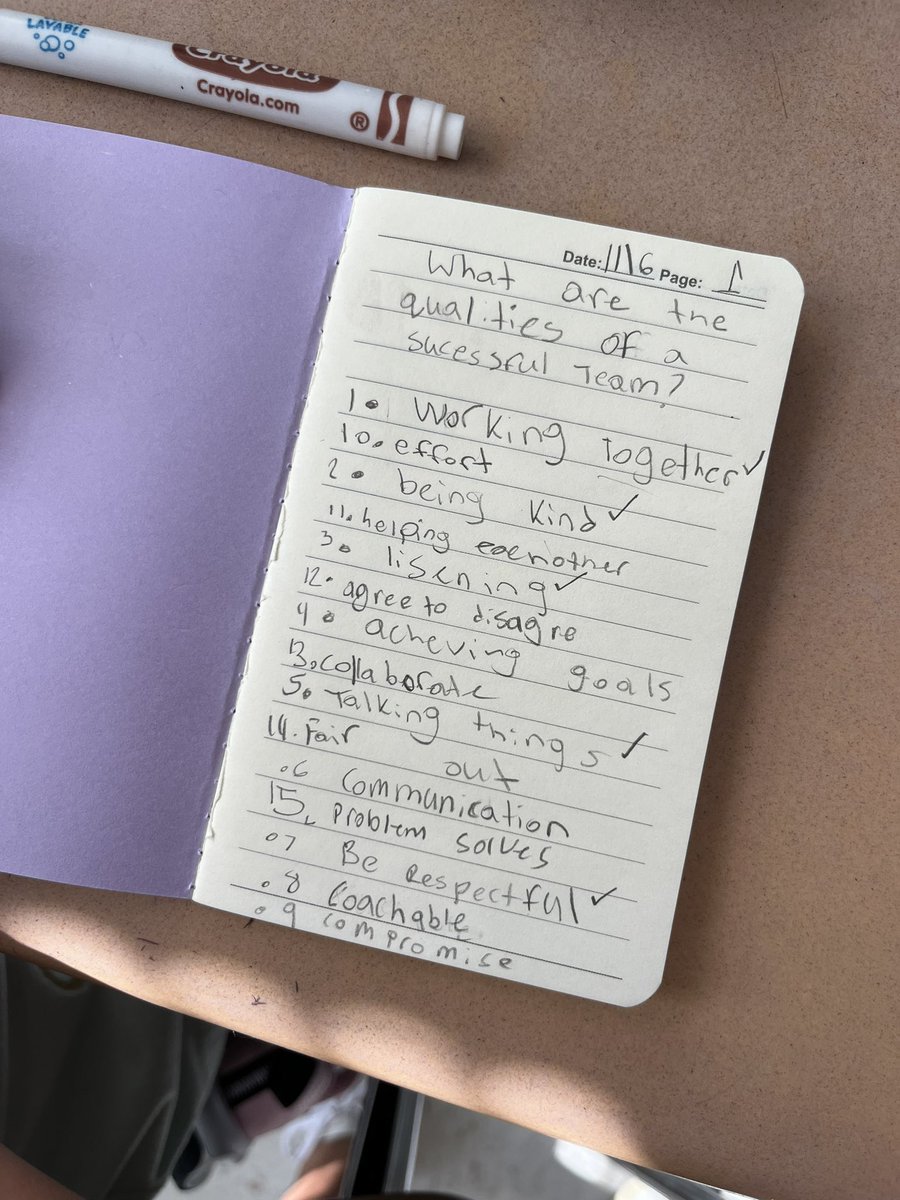 LAYABLE
Crayola
Crayola.com
®
Date: 11\6 Page: 1
What are the
qualities of a
sucessful Team?
1. Working Together ✓
10. effort
2. being kind ✓
11. helping eachother
3. lisening ✓
12. agree to disagre
4. acheving goals
13. collaborate
5. Talking things ✓
14. Fair
out
.6 Communication
15. problem solves
.7 Be Respectful ✓
.8 Coachable
.9 compromise